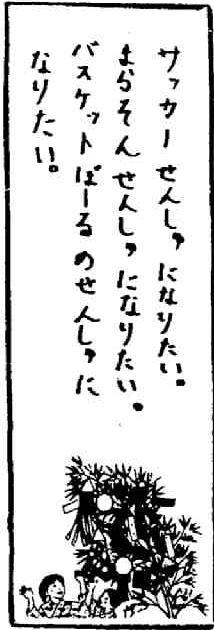 サッカーせんしゅになりたい。
まらそんせんしゅになりたい。
バスケットぼーるのせんしゅに
なりたい。